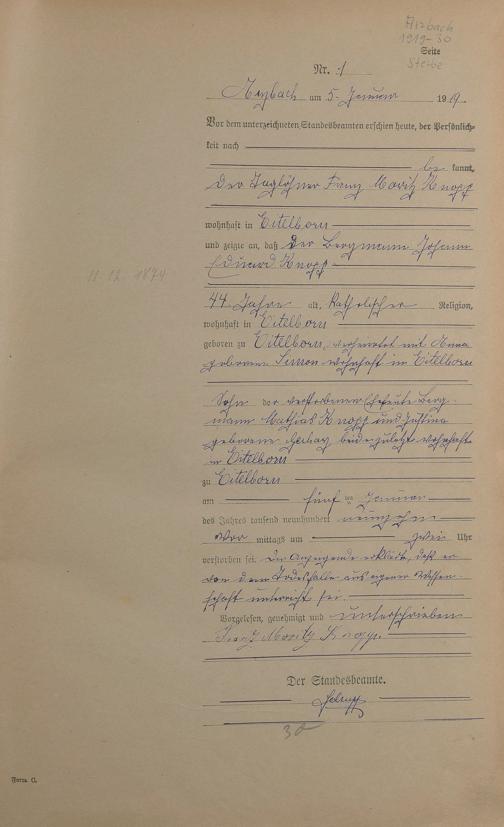 Arzbach
1919-30
Seite
Sterbe
Nr. 1
Arzbach am 5. Januar 1919.
Vor dem unterzeichneten Standesbeamten erschien heute, der Persönlich-
keit nach
be kannt,
der Taglöhner Franz Moritz Knopp
wohnhaft in Eitelborn
und zeigte an, daß der Bergmann Johann
Eduard Knopp
11.12.1874
44 Jahre alt, Katholischer Religion,
wohnhaft in Eitelborn
geboren zu Eitelborn, verheiratet mit Anna
geborene Simon wohnhaft in Eitelborn
Sohn der verstorbenen Eheleute Berg-
mann Mathias Knopp und Justina
geborene beide zuletzt wohnhaft
in Eitelborn
zu Eitelborn
am fünften Januar
des Jahres tausend neunhundert neunzehn
Vor mittags um zwei Uhr
verstorben sei. Der Anzeigende erklärte, daß er
von dem Todesfalle aus eigener Wissen-
schaft unterricht sei.
Vorgelesen, genehmigt und unterschrieben
Franz Moritz Knopp.
Der Standesbeamte.
30
Form. C.